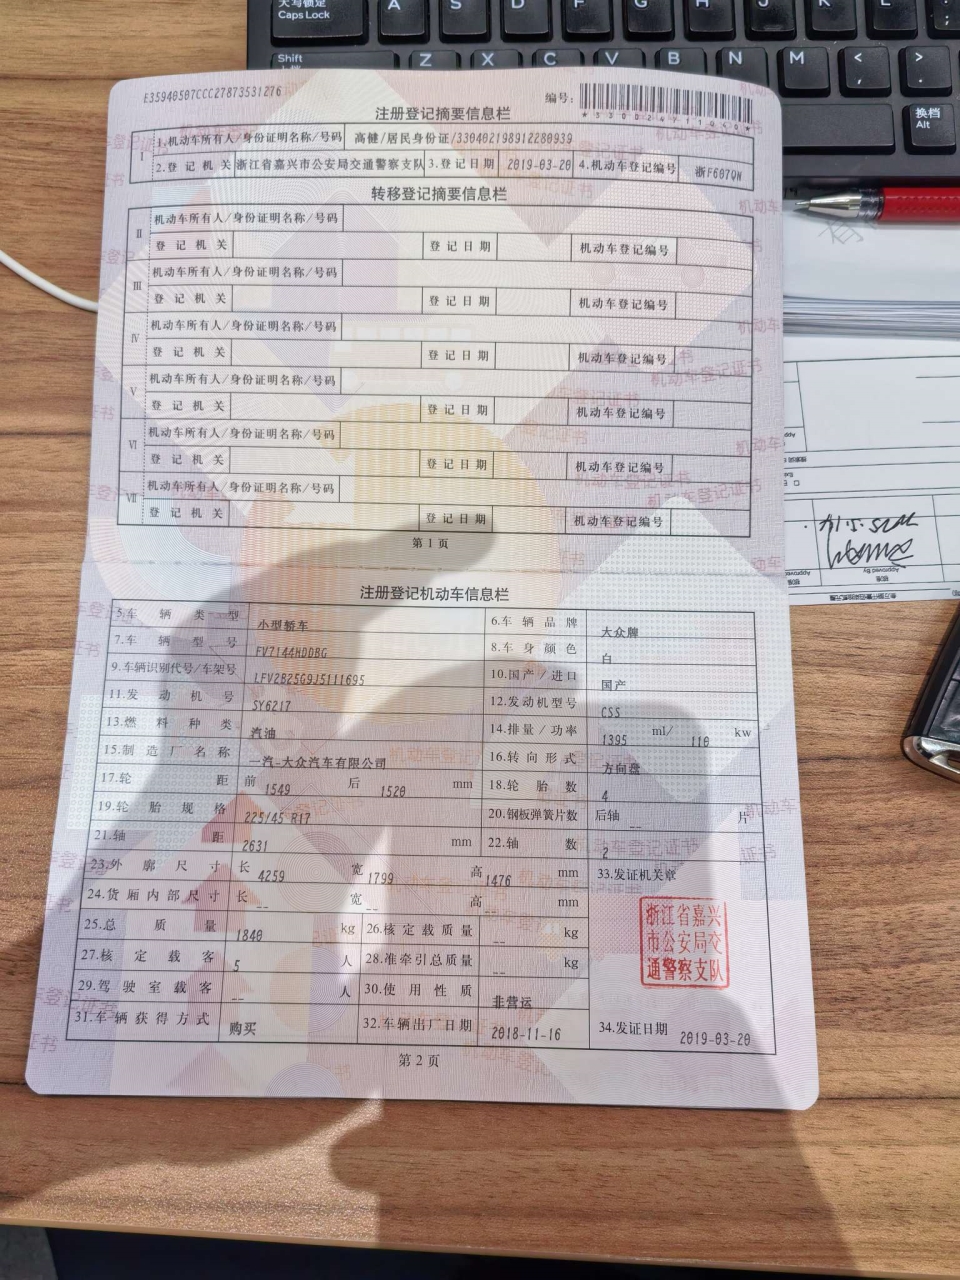 大写锁定
Caps Lock
A S D F G H J K L ;
Shift
Z X C V B N M < , > .
换档
Alt
E35940507CCC27873531276
编号:
*330024711040*
注册登记摘要信息栏
I 1.机动车所有人/身份证明名称/号码 高健/居民身份证/330402198912280939
2.登记机关 浙江省嘉兴市公安局交通警察支队 3.登记日期 2019-03-20 4.机动车登记编号 浙F607QN
转移登记摘要信息栏
II 机动车所有人/身份证明名称/号码
登记机关 登记日期 机动车登记编号
III 机动车所有人/身份证明名称/号码
登记机关 登记日期 机动车登记编号
IV 机动车所有人/身份证明名称/号码
登记机关 登记日期 机动车登记编号
V 机动车所有人/身份证明名称/号码
登记机关 登记日期 机动车登记编号
VI 机动车所有人/身份证明名称/号码
登记机关 登记日期 机动车登记编号
VII 机动车所有人/身份证明名称/号码
登记机关 登记日期 机动车登记编号
第1页
注册登记机动车信息栏
5.车辆类型 小型轿车 6.车辆品牌 大众牌
7.车辆型号 FV7144HDDBG 8.车身颜色 白
9.车辆识别代号/车架号 LFV2B25G9J5111695 10.国产/进口 国产
11.发动机号 SY6217 12.发动机型号 CSS
13.燃料种类 汽油 14.排量/功率 1395 ml/ 110 kw
15.制造厂名称 一汽-大众汽车有限公司 16.转向形式 方向盘
17.轮距 前 1549 后 1520 mm 18.轮胎数 4
19.轮胎规格 225/45 R17 20.钢板弹簧片数 后轴 -- 片
21.轴距 2631 mm 22.轴数 2
23.外廓尺寸 长 4259 宽 1799 高 1476 mm 33.发证机关章
24.货厢内部尺寸 长 -- 宽 -- 高 -- mm
25.总质量 1840 kg 26.核定载质量 -- kg
27.核定载客 5 人 28.准牵引总质量 -- kg
29.驾驶室载客 -- 人 30.使用性质 非营运
31.车辆获得方式 购买 32.车辆出厂日期 2018-11-16 34.发证日期 2019-03-20
浙江省嘉兴
市公安局交
通警察支队
第2页